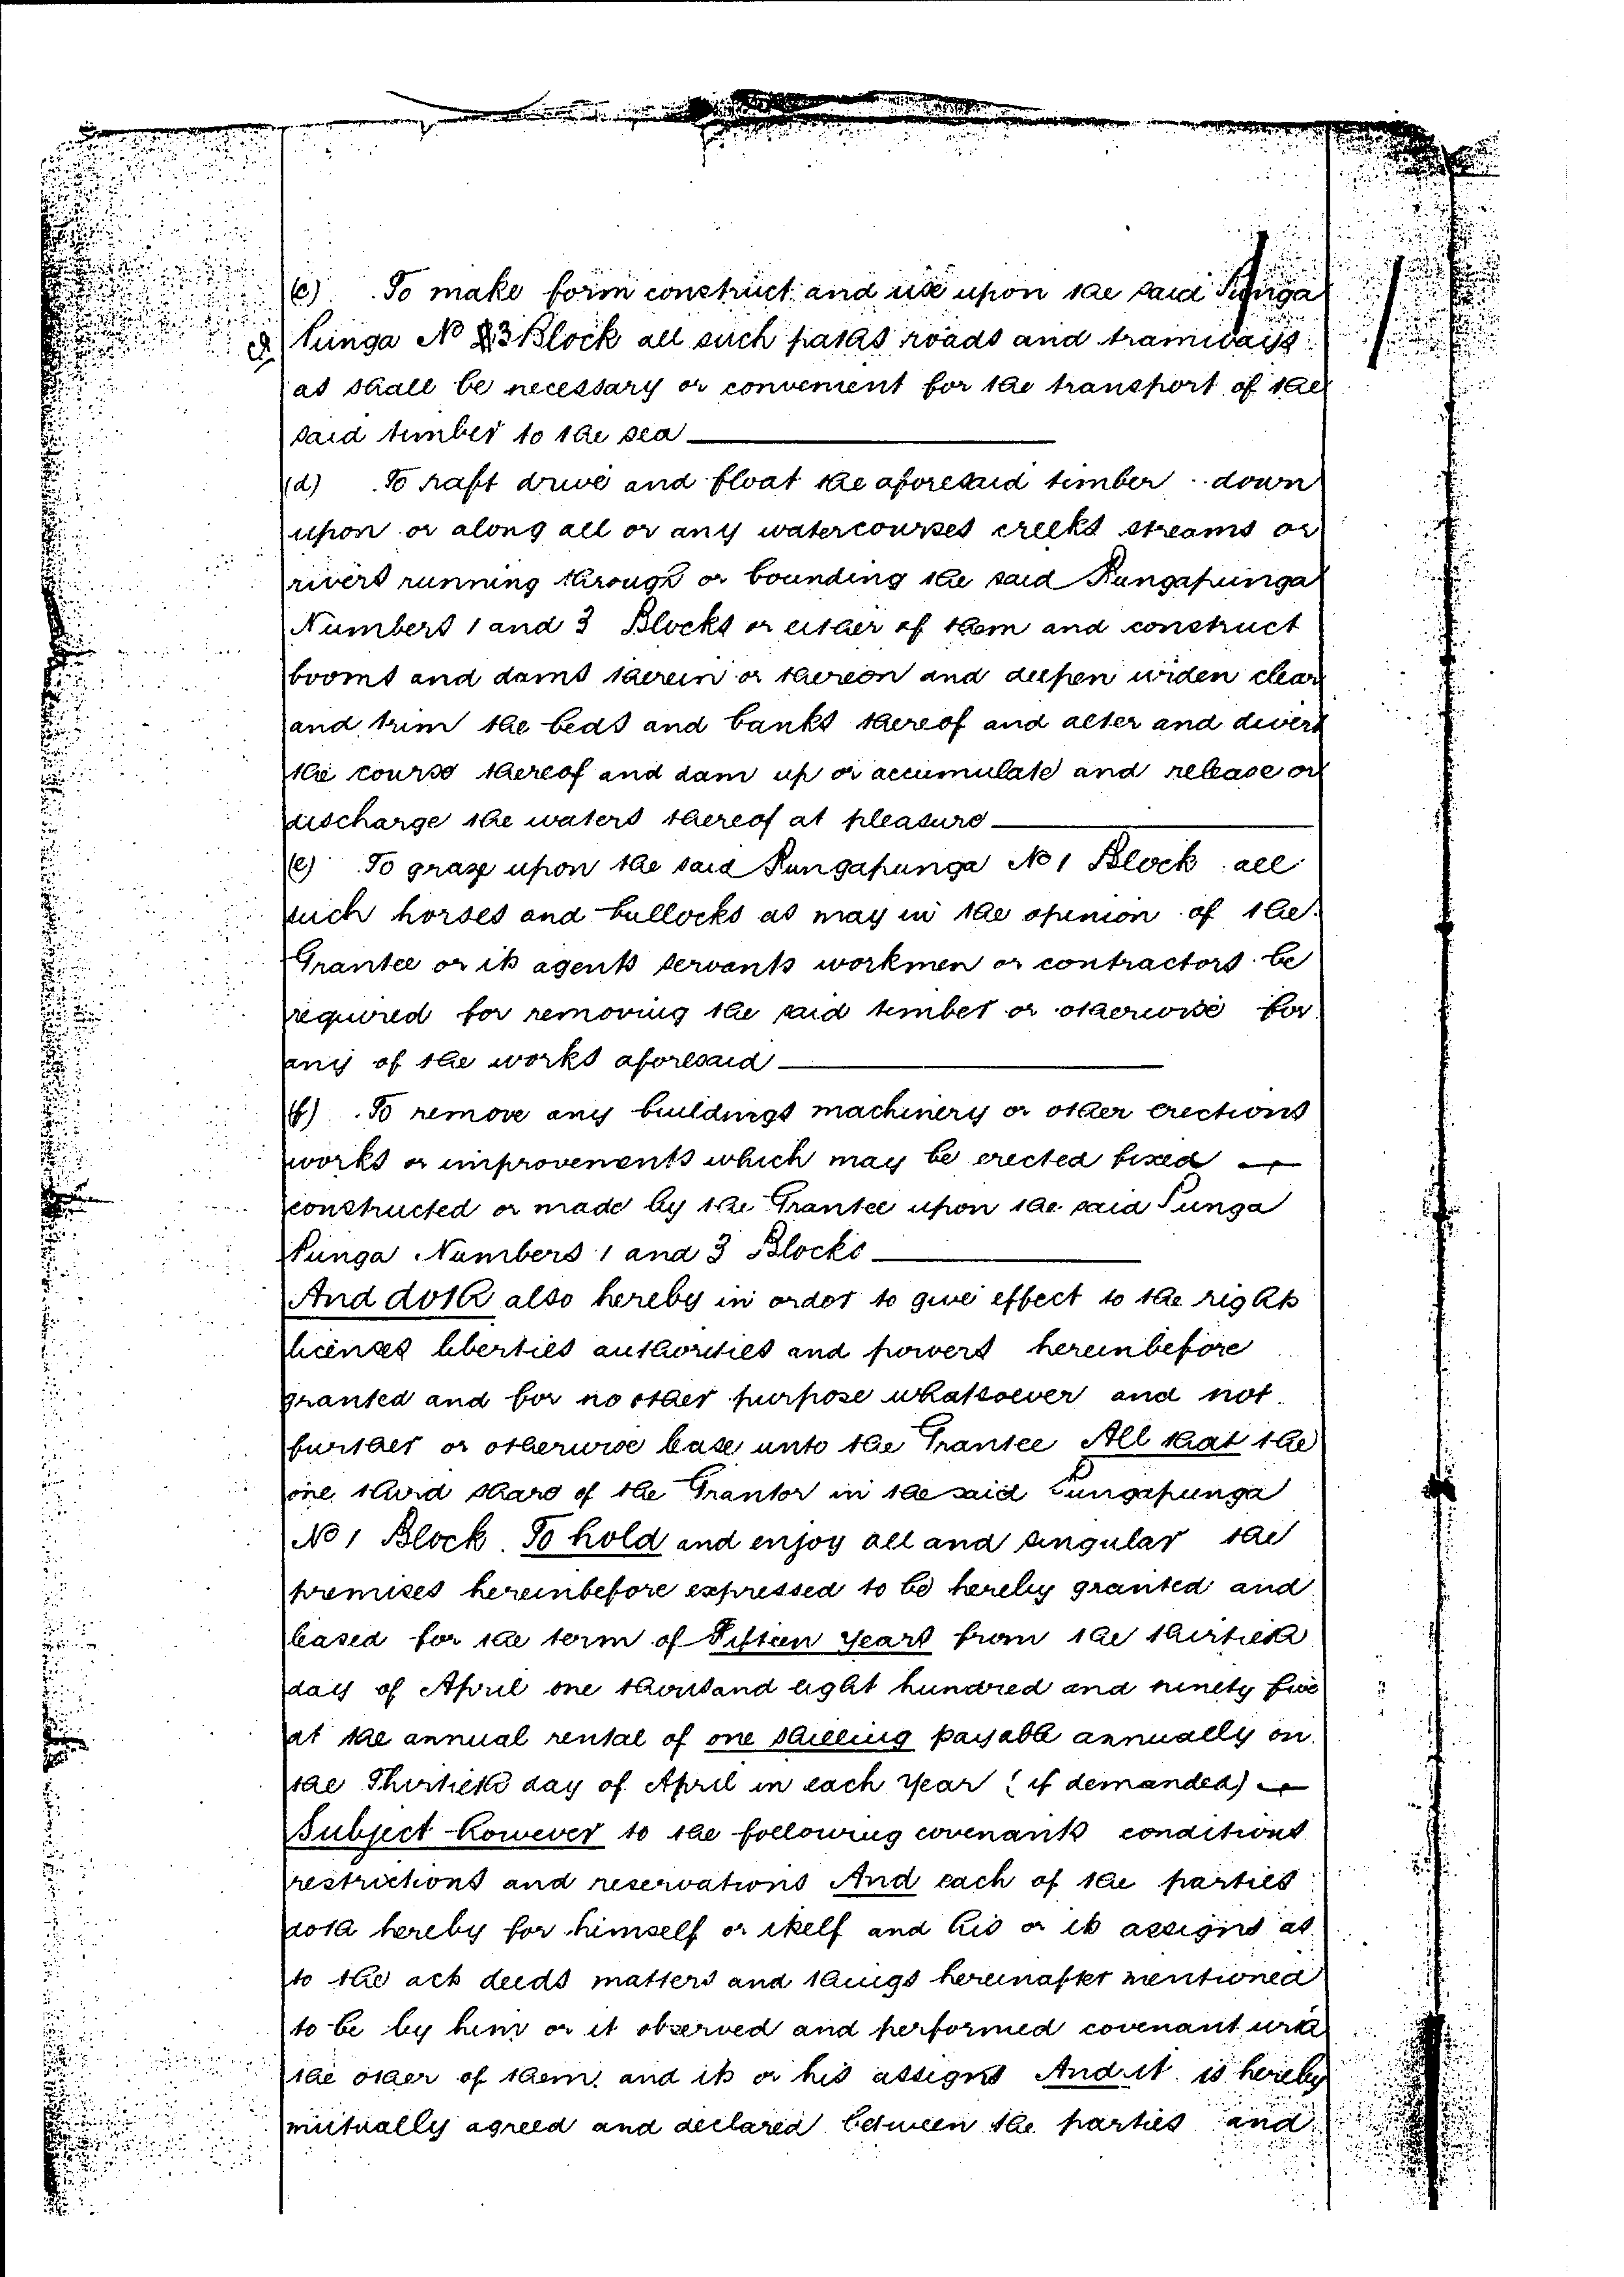 (c) To make form construct and use upon the said Punga
Punga No 3 Block all such paths roads and tramways
as shall be necessary or convenient for the transport of the
said timber to the sea
(d) To raft drive and float the aforesaid timber down
upon or along all or any watercourses creeks streams or
rivers running through or bounding the said Pungapunga
Numbers 1 and 3 Blocks or either of them and construct
booms and dams therein or thereon and deepen widen clear
and trim the beds and banks thereof and alter and divert
the course thereof and dam up or accumulate and release or
discharge the waters thereof at pleasure
(e) To graze upon the said Pungapunga No 1 Block all
such horses and bullocks as may in the opinion of the
Grantee or its agents servants workmen or contractors be
required for removing the said timber or otherwise for
any of the works aforesaid
(f) To remove any buildings machinery or other erections
works or improvements which may be erected fixed
constructed or made by the Grantee upon the said Punga
Punga Numbers 1 and 3 Blocks
And doth also hereby in order to give effect to the rights
licenses liberties authorities and powers hereinbefore
granted and for no other purpose whatsoever and not
further or otherwise lease unto the Grantee All that the
one third share of the Grantor in the said Pungapunga
No 1 Block. To hold and enjoy all and singular the
premises hereinbefore expressed to be hereby granted and
leased for the term of Fifteen years from the thirtieth
day of April one thousand eight hundred and ninety five
at the annual rental of one shilling payable annually on
the Thirtieth day of April in each year (if demanded)
Subject however to the following covenants conditions
restrictions and reservations And each of the parties
doth hereby for himself or itself and his or its assigns as
to the acts deeds matters and things hereinafter mentioned
to be by him or it observed and performed covenant with
the other of them and its or his assigns And it is hereby
mutually agreed and declared between the parties and